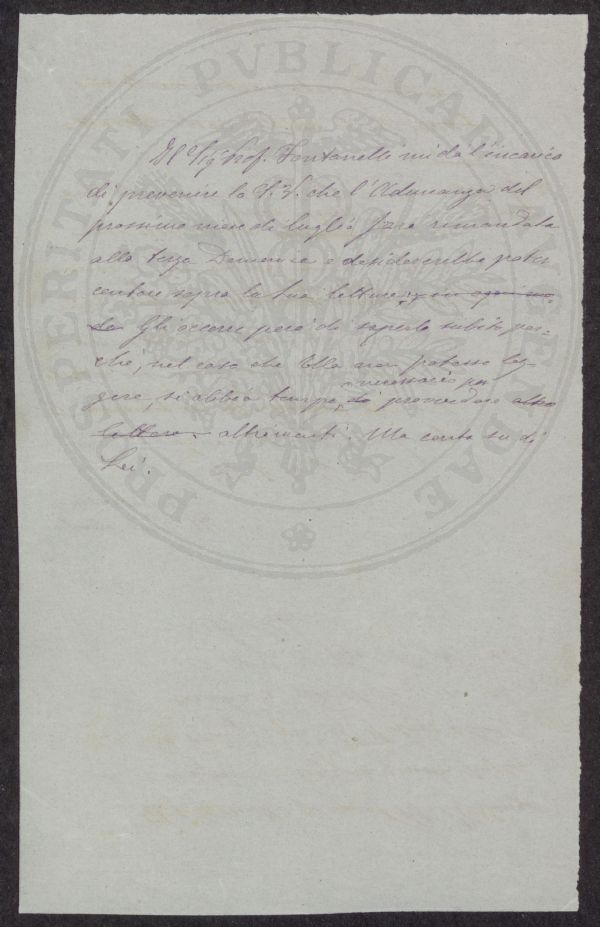 PROSPERITATI PVBLICAE AVGENDAE
Il Sig. Prof. Fontanelli mi dà l'incarico
di prevenire la S. V. che l'Adunanza del
prossimo mese di luglio sarà rimandata
alla terza Domenica e desidererebbe poter
contare sopra la sua lettura;
Gli occorre però di saperlo subito, per-
chè, nel caso che Ella non potesse leg-
gere, si abbia tempo necessario per
di provvedere altra
lettura altrimenti. Ma conta su di
Lei.